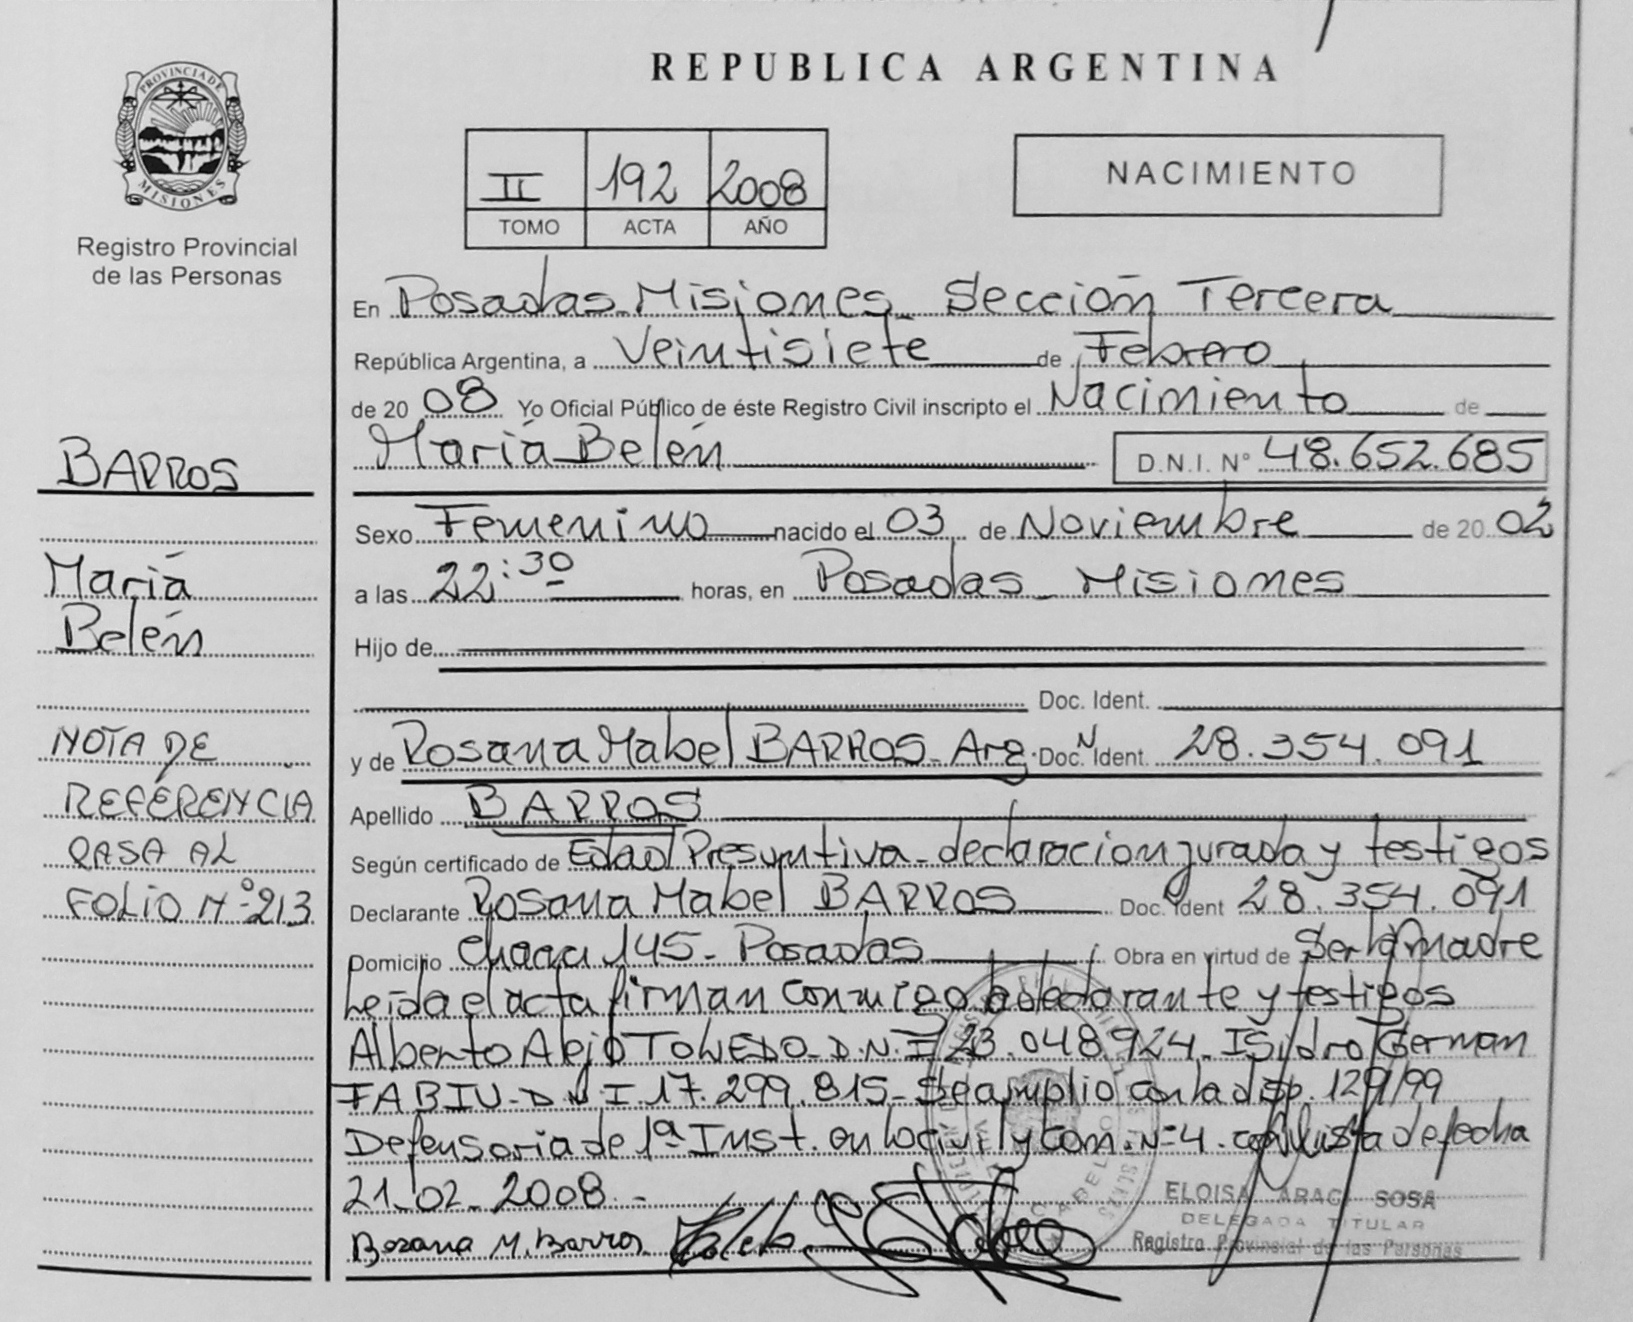 REPUBLICA ARGENTINA
PROVINCIA DE MISIONES
Registro Provincial
de las Personas
II 192 2008
TOMO ACTA AÑO
NACIMIENTO
En Posadas_Misiones_ Sección Tercera
República Argentina, a Veintisiete de Febrero
de 20 08 Yo Oficial Público de éste Registro Civil inscripto el Nacimiento de
María Belén D.N.I. N° 48.652.685
Sexo Femenino nacido el 03 de Noviembre de 20 02
a las 22:30 horas, en Posadas_ Misiones
Hijo de
Doc. Ident.
y de Rosana Mabel BARROS_ Arg. Doc. Ident. 28.354.091
Apellido BARROS
Según certificado de Edad Presuntiva_ declaracion jurada y testigos
Declarante Rosana Mabel BARROS Doc. Ident 28.354.091
Domicilio 145_ Posadas Obra en virtud de Ser la madre
Leida el acta firman conmigo la declarante y testigos
Alberto Alejo TOLEDO_ D.N.I 23.048.924_ Isidro German
FABIU_ D.N.I 17.299.815_ Se amplio con la disp. 129/99
Defensoria de 1ª Inst. en lo civil y Com. N=4. con vista de fecha
21_02_2008._
Rosana M. Barros
ELOISA ARACI SOSA
DELEGADA TITULAR
Registro Provincial de las Personas
BARROS
María
Belén
NOTA DE
REFERENCIA
PASA AL
FOLIO N° 213